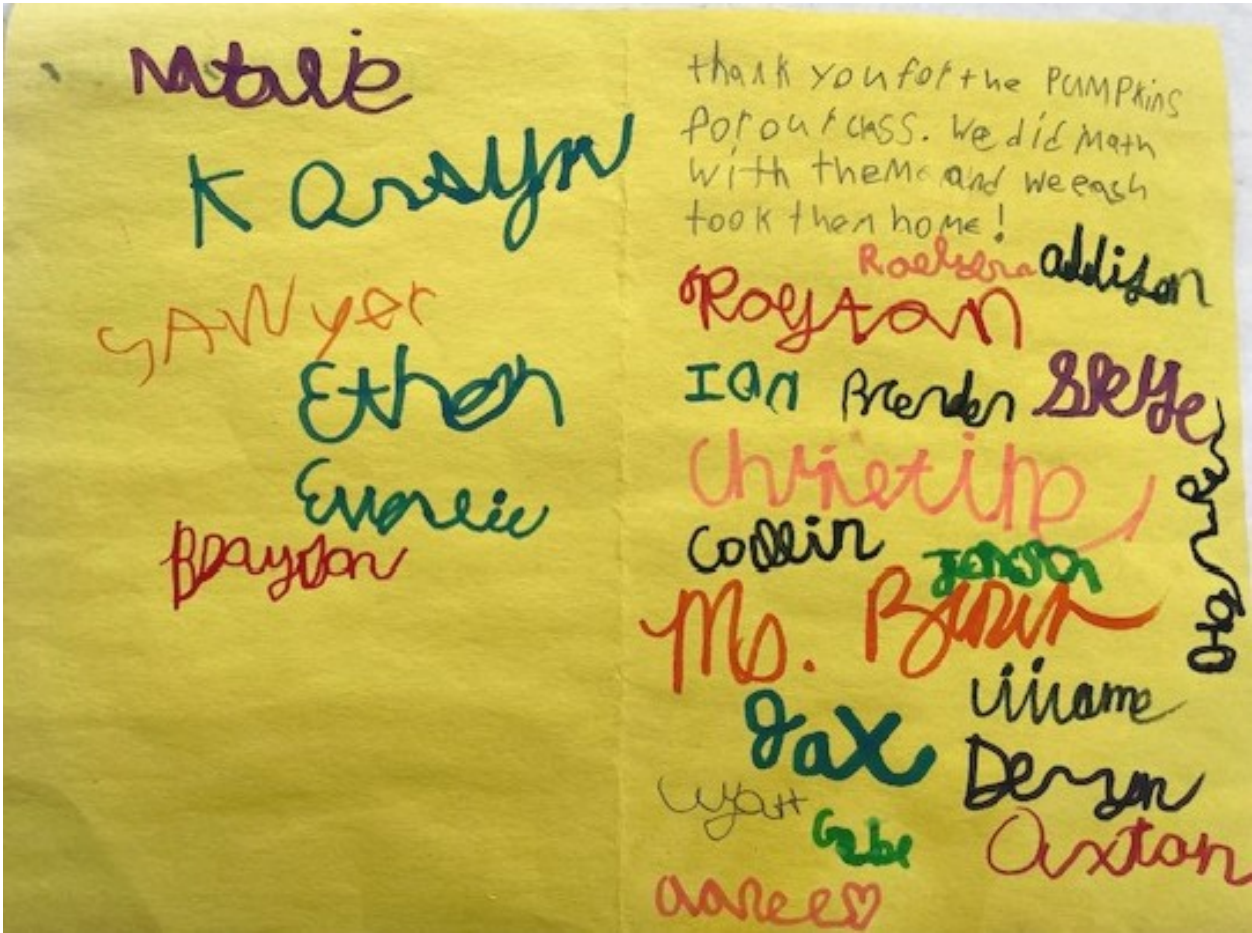 Natalie
Karsyn
SAWyer
Ethan
Everleie
Brayson
thank you for the PUMPkins
for our class. We did Math
with them and we eash
took then home!
addison
Roystan
Ian Brenden Skye
Christine
Collin
Jensen
Ms.
Jax
Wyatt
Gabe
Axtan